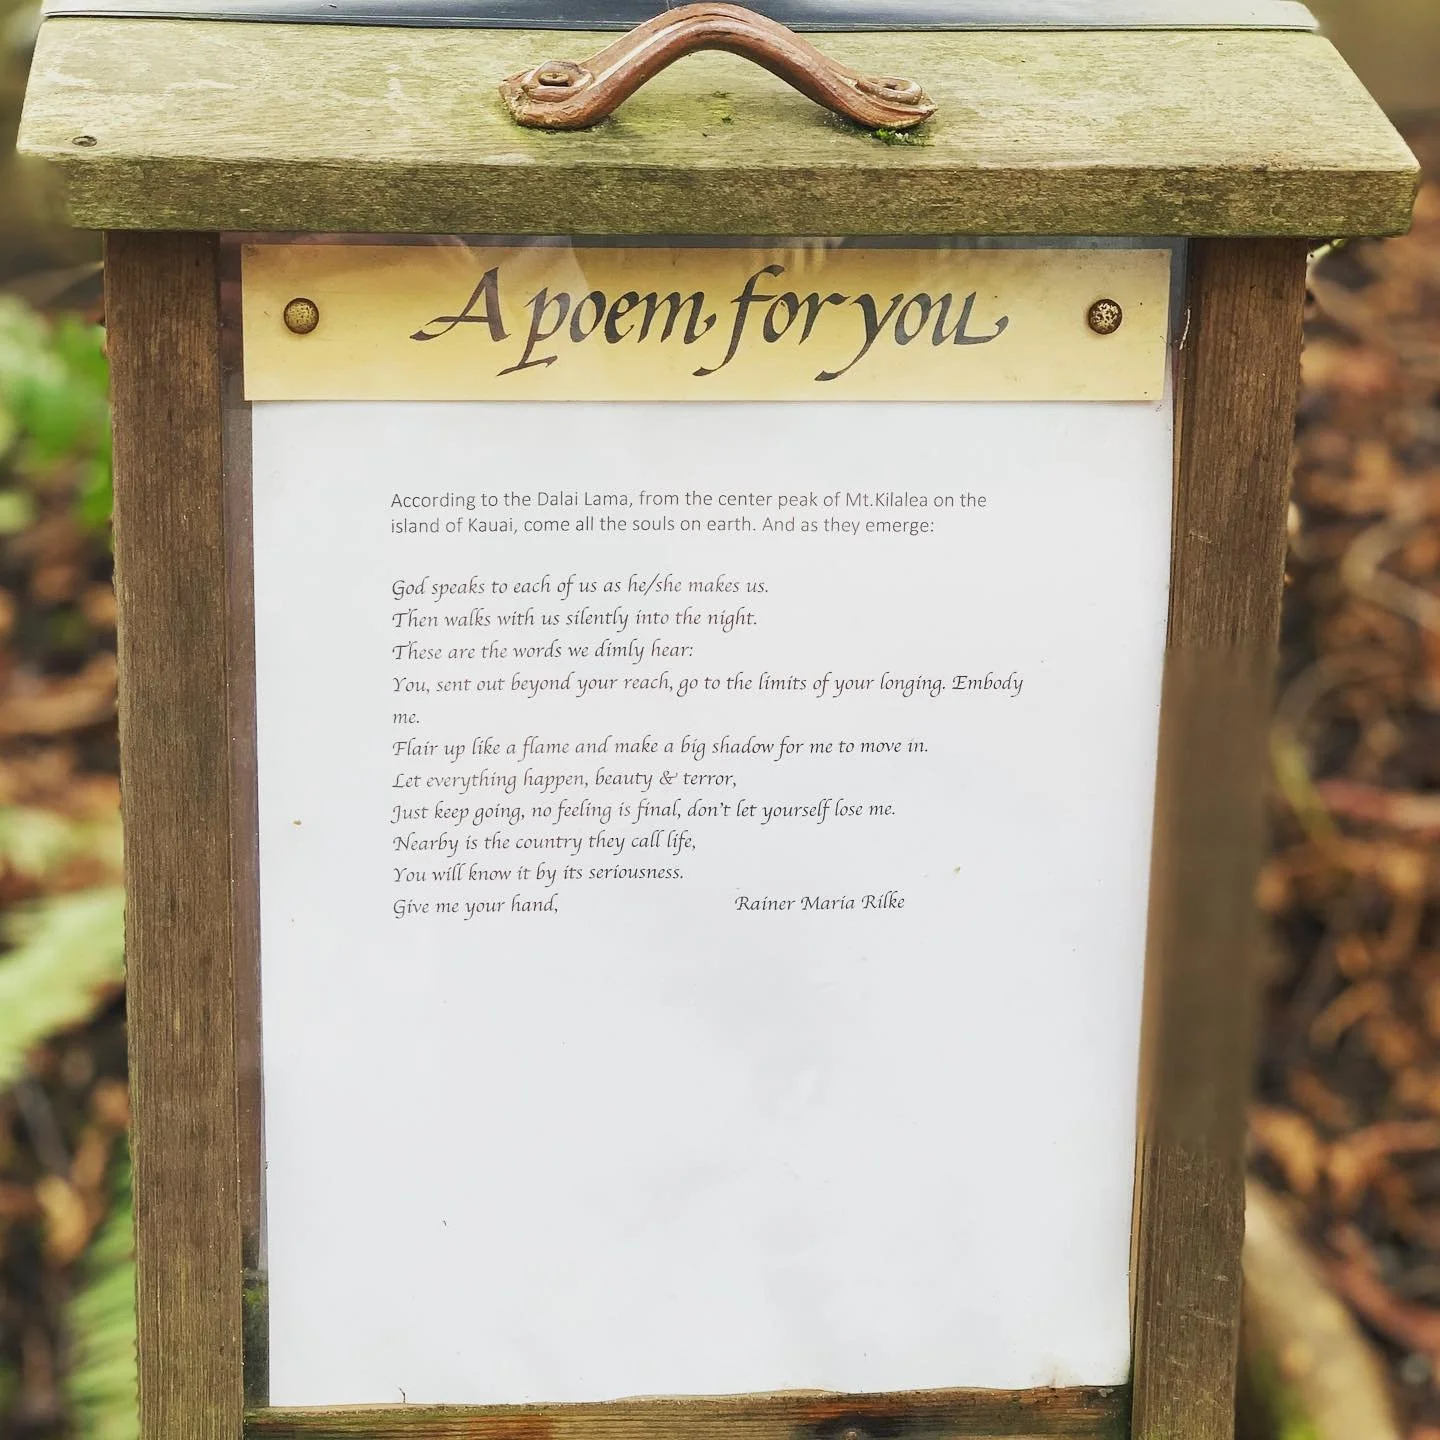 A poem for you
According to the Dalai Lama, from the center peak of Mt.Kilalea on the
island of Kauai, come all the souls on earth. And as they emerge:
God speaks to each of us as he/she makes us.
Then walks with us silently into the night.
These are the words we dimly hear:
You, sent out beyond your reach, go to the limits of your longing. Embody
me.
Flair up like a flame and make a big shadow for me to move in.
Let everything happen, beauty & terror,
Just keep going, no feeling is final, don't let yourself lose me.
Nearby is the country they call life,
You will know it by its seriousness.
Give me your hand, Rainer Maria Rilke